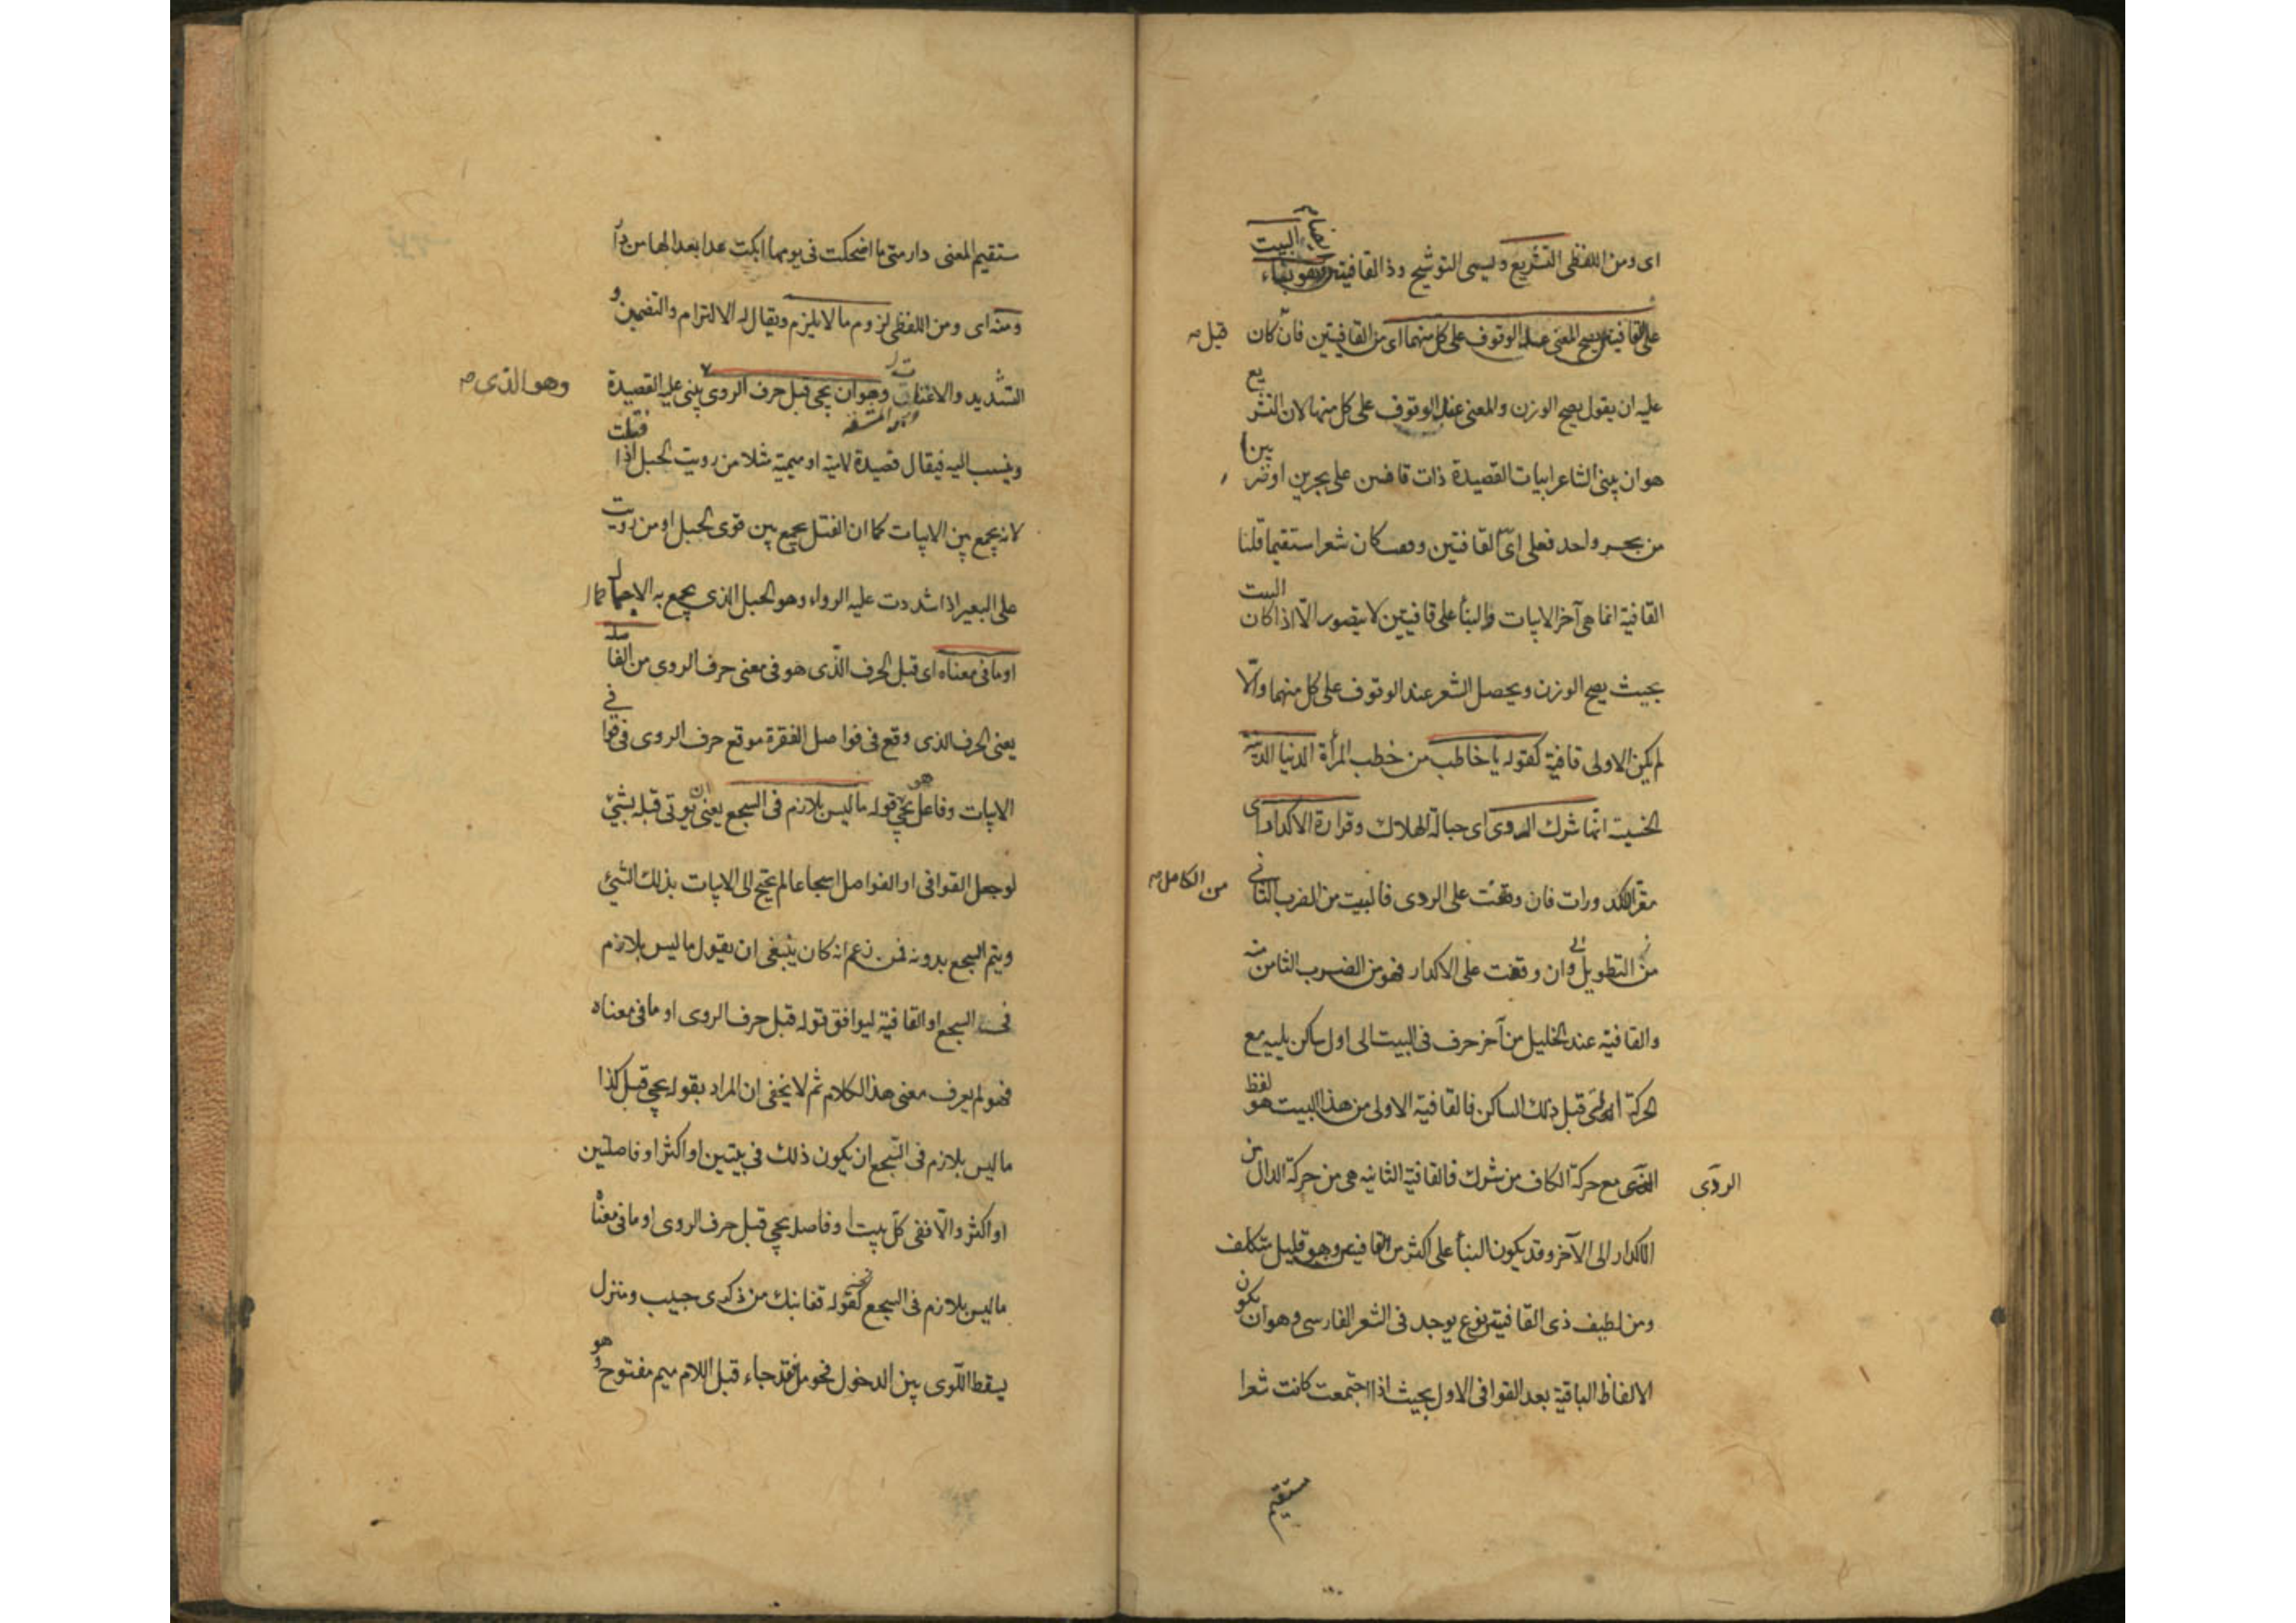 اى ومن اللفظى التشريع ويسمى التوشيح وذا القافيتين ايضا وهو بناء البيت
على القافيتين يصح المعنى عند الوقوف على كل منهما اى من القافيتين فان كان
قيل
عليه ان يقول يصح الوزن والمعنى عند الوقوف على كل منهما لان التشريع
هو ان يبنى الشاعر ابيات القصيدة ذات قافيتين على بحرين او ضربين
من بحر واحد فعلى اى القافيتين وقفت كان شعرا مستقيما قلنا
القافية انما هى آخر الابيات البيت والبنأ على قافيتين لا يتصور الا اذا كان
بحيث يصح الوزن ويحصل الشعر عند الوقوف على كل منهما والا
لم يكن الاولى قافية كقوله يا خاطب من خطب المرأة الدنيا الدنية
الخسيسة انما شرك الردى اى حبالة الهلاك وقرارة الاكدار اى
مقر الكدورات فان وقفت على الردى فالبيت من الضرب الثانى
من الكامل
من الطويل وان وقفت على الاكدار فهو من الضرب الثامن منه
والقافية عند الخليل من آخر حرف فى البيت الى اول ساكن يليه مع
الحركة التى قبل ذلك الساكن فالقافية الاولى من هذا البيت هو لفظ
الردى
مع حركة الكاف من شرك فالقافية الثانيه هى من حركة الدال من
الاكدار الى الآخر وقد يكون البنأ على اكثر من القافيتين وهو قليل متكلف
ومن لطيف ذى القافيتين نوع يوجد فى الشعر الفارسى وهو ان يكون
الالفاظ الباقية بعد القوافى الاول بحيث اذا اجتمعت كانت شعرا
مستقيم
ستقيم المعنى دار متى ما اضحكت فى يومها ابكت غدا بعدا لها من دار
ومنه اى ومن اللفظى لزوم ما لا يلزم ويقال له الالتزام والتضمين و
التشديد والاعنات وهو ان يجئ قبل حرف الروى يبنى عليه القصيدة
وهو الذى
وينسب اليه فيقال قصيدة لامية او ميمية مثلا من رويت الحبل اذا فتلت
لانه يجمع بين الابيات كما ان الفتل يجمع بين قوى الحبل او من رويت
على البعير اذا شددت عليه الرواء وهو الحبل الذى يجمع به الاحمال
او ما فى معناه اى قبل الحرف الذى هو فى معنى حرف الروى من الفاصلة
يعنى الحرف الذى وقع فى فواصل الفقرة موقع حرف الروى فى قوافى
الابيات وفاعل يجئ هو قوله ما ليس بلازم فى السجع يعنى ان يوتى قبله بشئ
لو جعل القوافى او الفواصل اسجاعا لم يحتج الى الابيات بذلك الشئ
ويتم السجع بدونه فمن زعم انه كان ينبغى ان يقول ما ليس بلازم
فى السجع او القافية ليوافق قوله قبل حرف الروى او ما فى معناه
فهو لم يعرف معنى هذا الكلام ثم لا يخفى ان المراد بقوله يجئ قبل كذا
ما ليس بلازم فى السجع ان يكون ذلك فى بيتين او اكثر او فاصلتين
او اكثر والا ففى كل بيت او فاصلة يجئ قبل حرف الروى او ما فى معناه
ما ليس بلازم فى السجع كقوله قفا نبك من ذكرى حبيب ومنزل
بسقط اللوى بين الدخول فحومل فقد جاء قبل اللام ميم مفتوح وهو